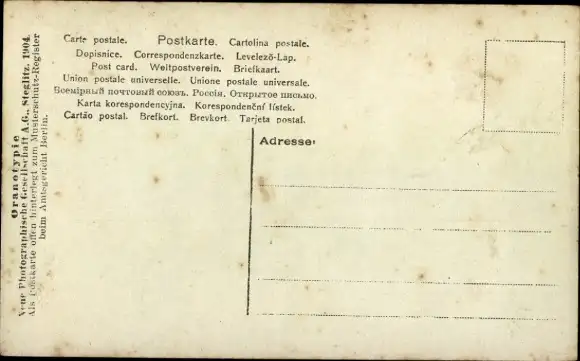 Carte postale. Postkarte. Cartolina postale.
Dopisnice. Correspondenzkarte. Levelező-Lap.
Post card. Weltpostverein. Briefkaart.
Union postale universelle. Unione postale universale.
Всемірный почтовый союзъ. Россія. Открытое письмо.
Karta korespondencyjna. Korespondenční lístek.
Cartão postal. Brefkort. Brevkort. Tarjeta postal.
Adresse:
Oranotypie
Neue Photographische Gesellschaft A.G., Steglitz. 1904.
Als Postkarte offen hinterlegt zum Musterschutz-Register
beim Amtsgericht Berlin.